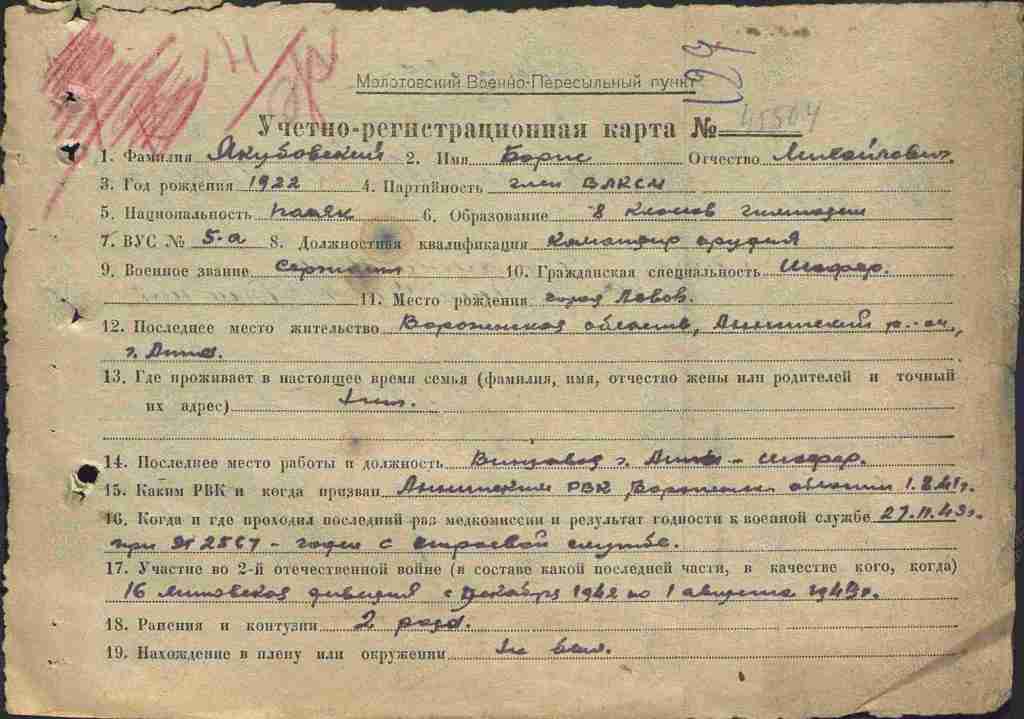 Молотовский Военно-Пересыльный пункт
Учетно-регистрационная карта №
1. Фамилия Якубовский 2. Имя Борис Отчество Михайлович
3. Год рождения 1922 4. Партийность член ВЛКСМ
5. Национальность поляк 6. Образование 8 классов гимназии
7. ВУС № 5-а 8. Должностная квалификация Командир орудия
9. Военное звание Сержант 10. Гражданская специальность Шофер.
11. Место рождения город Львов.
12. Последнее место жительство Воронежская область, Аннинский р-он,
г. Анна.
13. Где проживает в настоящее время семья (фамилия, имя, отчество жены или родителей и точный
их адрес)
14. Последнее место работы и должность г. Анна - шофер.
15. Каким РВК и когда призван Аннинским РВК Воронежской области 1.8.41г.
16. Когда и где проходил последний раз медкомиссии и результат годности к военной службе 27.11.43г.
при 2567 - годен к строевой службе.
17. Участие во 2-й отечественной войне (в составе какой последней части, в качестве кого, когда)
16 литовская дивизия с декабря 1942 по 1 августа 1943г.
18. Ранения и контузии 2 раза.
19. Нахождение в плену или окружении не был.